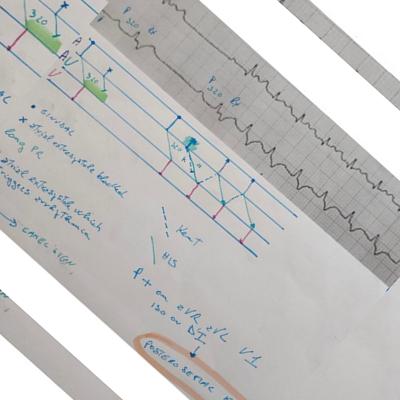 P
320
P
320
320
A
AV
V
320
• SINUSAL
x atrial extrasystole blocked
long PR
atrial extrasystole which
triggers
→ CAMEL SIGN
KENT
HIS
P + on aVR aVL V1
ISO on DI
POSTEROSEPTAL